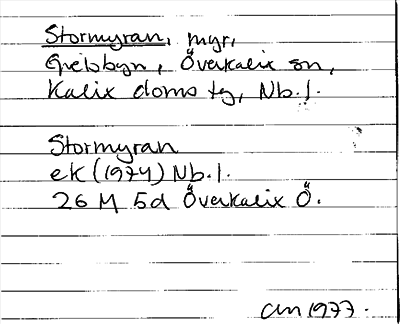 Stormyran, myr,
Grelsbyn, Överkalix sn,
Kalix doms tg, Nb. l.
Stormyran
ek (1974) Nb. l.
26 M 5d Överkalix Ö.
am 1977.